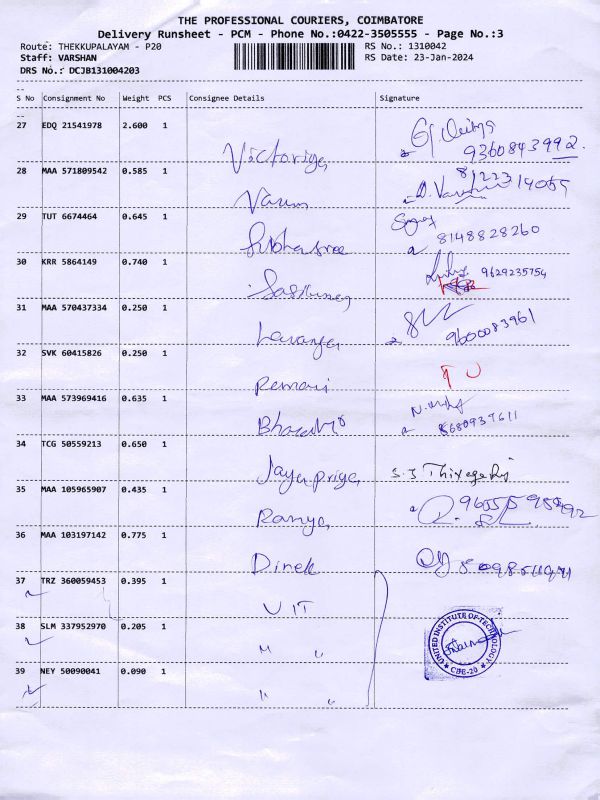 THE PROFESSIONAL COURIERS, COIMBATORE
Delivery Runsheet - PCM - Phone No.:0422-3505555 - Page No.:3
Route: THEKKUPALAYAM - P20 RS No.: 1310042
Staff: VARSHAN RS Date: 23-Jan-2024
DRS No.: DCJB131004203
S No Consignment No Weight PCS Consignee Details Signature
27 EDQ 21541978 2.600 1
9360843992
28 MAA 571809542 0.585 1
Varun
29 TUT 6674464 0.645 1
8148828260
30 KRR 5864149 0.740 1
9629235754
31 MAA 570437334 0.250 1
Lavanya 9600083961
32 SVK 60415826 0.250 1
33 MAA 573969416 0.635 1
Bharathi
34 TCG 50559213 0.650 1
Jayapriya
35 MAA 105965907 0.435 1
Ramya
36 MAA 103197142 0.775 1
37 TRZ 360059453 0.395 1
UIT
38 SLM 337952970 0.205 1
" "
39 NEY 50090041 0.090 1
" "
UNITED INSTITUTE OF TECHNOLOGY
CBE-20